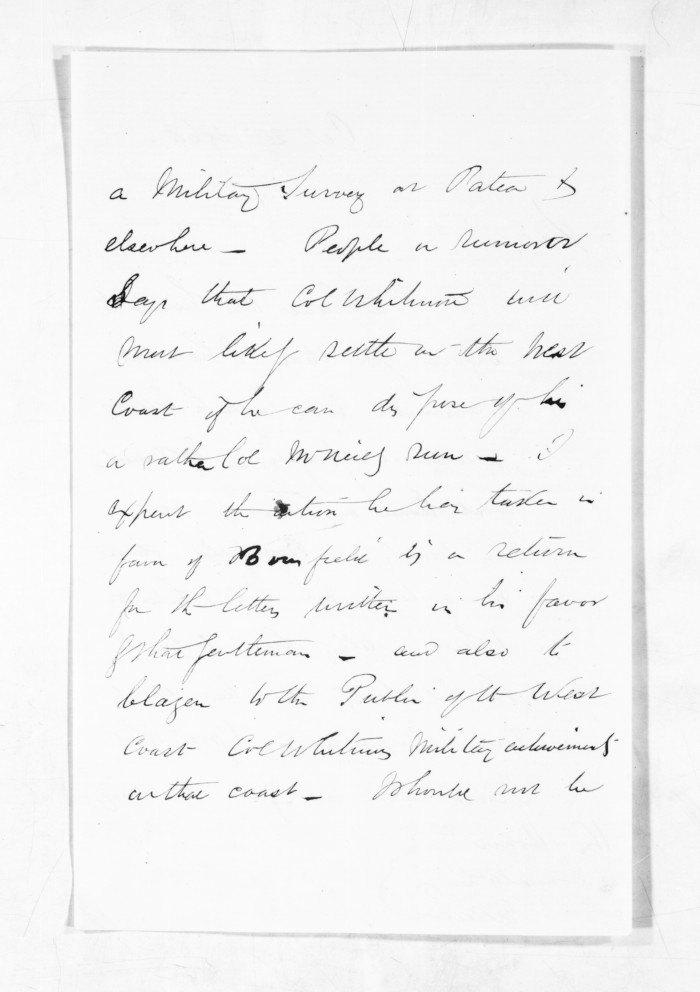 a Military Survey at Patea &
elsewhere — People or rumour
says that Col Whitmore will
most likely settle on the West
Coast if he can dispose of his
a rather Col McNeils run — I
expect the action he has taken in
favor of Bromfield is a return
for the letters written in his favor
by that gentleman — and also to
blazen to the Public of the West
Coast Col Whitmores Military achievements
on that coast — I should not be